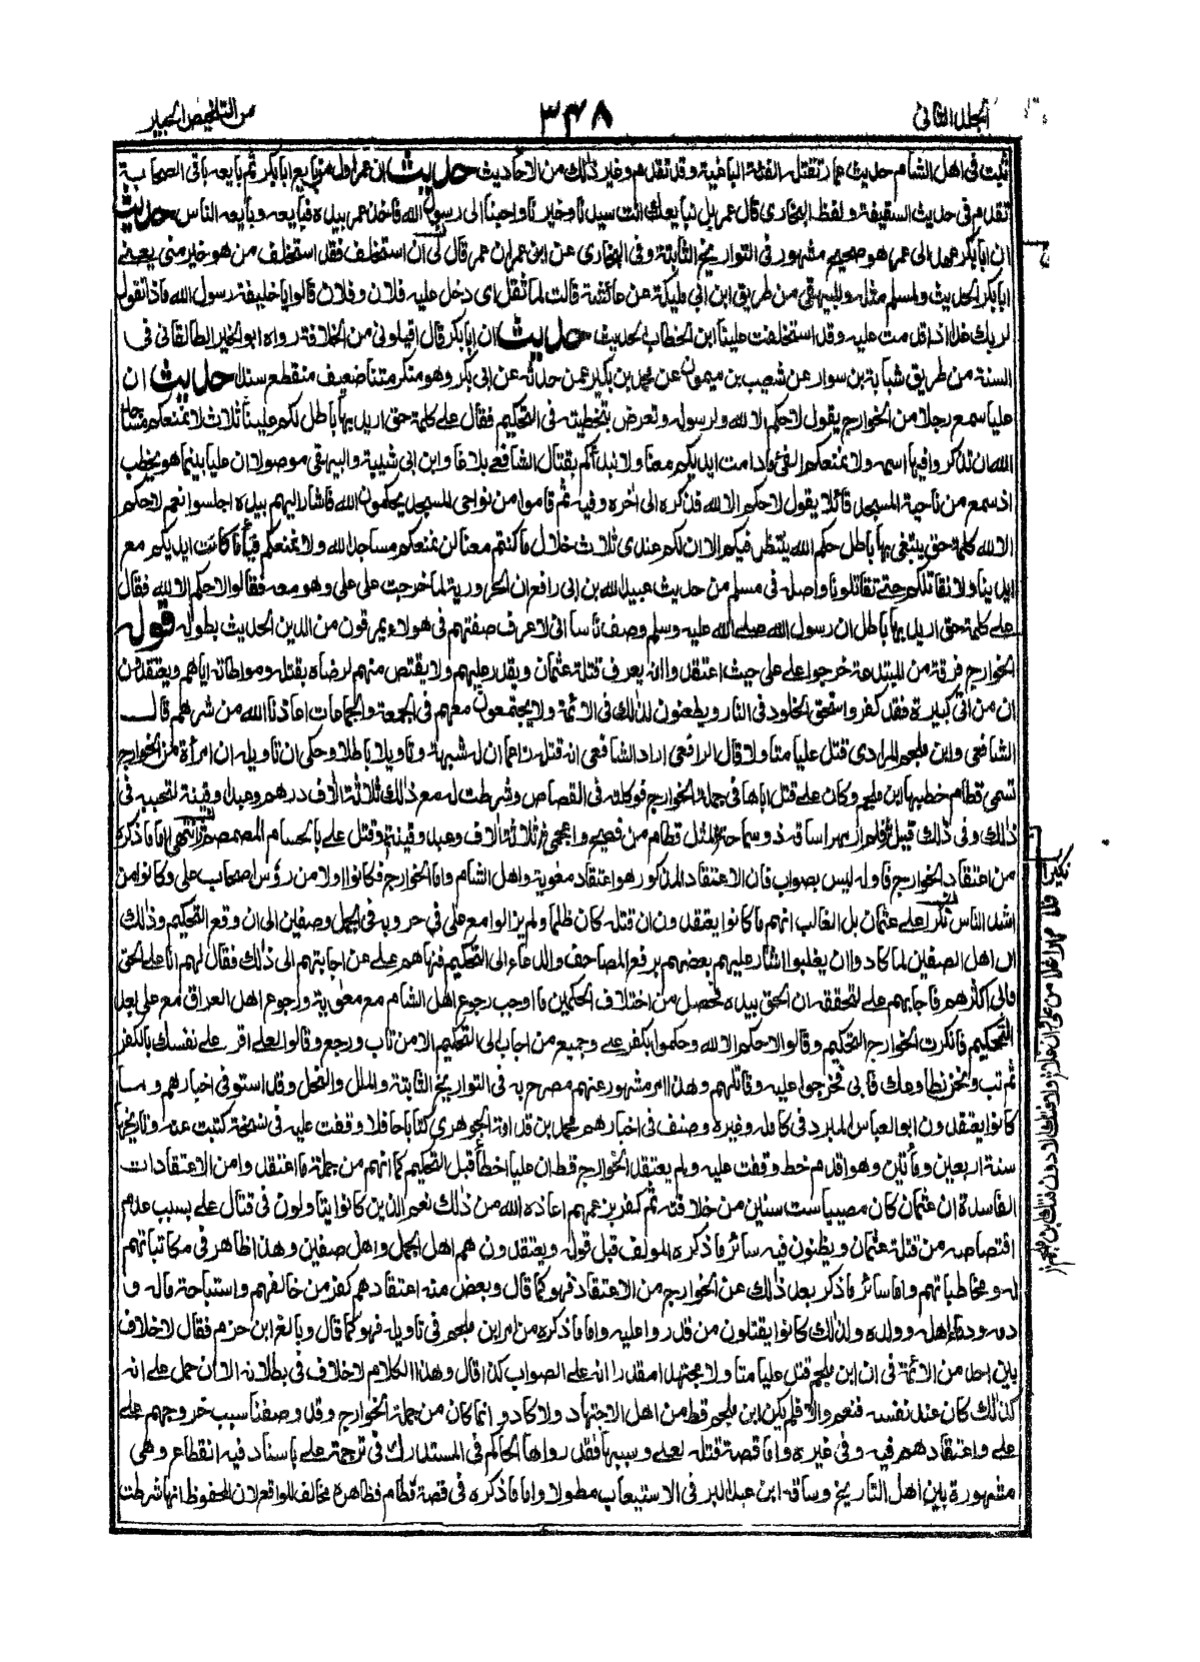 المجلد الثاني
٣٤٨
من التلخيص الحبير
ثبت في اهل الشام حديث عمار تقتله الفئة الباغية وقد تقدم وغير ذلك من الاحاديث حديث ان عمر اول من بايع ابا بكر ثم بايعه باقي الصحابة
تقدم في حديث السقيفة ولفظ البخاري قال عمر بل نبايعك انت سيدنا وخيرنا واحبنا الى رسول الله فاخذ عمر بيده فبايعه وبايعه الناس حديث
ان ابا بكر عهد الى عمر هو صحيح مشهور في التواريخ الثابتة وفي البخاري عن ابن عمر ان عمر قال لي ان استخلف فقد استخلف من هو خير مني يعني
ابا بكر الحديث ولمسلم مثله وللبيهقي من طريق ابن ابي مليكة عن عائشة قالت لما ثقل ابي دخل عليه فلان وفلان قالوا يا خليفة رسول الله ماذا تقول
لربك غدا اذا قدمت عليه وقد استخلفت علينا ابن الخطاب الحديث حديث ان ابا بكر قال اقيلوني من الخلافة رواه ابو الخير الطالقاني في
السنة من طريق شبابة بن سوار عن شعيب بن ميمون عن محمد بن بكير عمن حدثه عن ابي بكر وهو منكر متنا ضعيف منقطع سندا حديث ان
عليا سمع رجلا من الخوارج يقول لا حكم الا لله ولرسوله وتعرض بتخطيته في التحكيم فقال علي كلمة حق اريد بها باطل لكم علينا ثلاث لا نمنعكم مساجد
الله ان تذكروا فيها اسمه ولا نمنعكم الفئ ما دامت ايديكم معنا ولا نبدأكم بقتال الشافعي بلاغا وابن ابي شيبة والبيهقي موصولا ان عليا بينما هو يخطب
اذ سمع من ناحية المسجد قائلا يقول لا حكم الا لله فذكره الى اخره وفيه ثم قاموا من نواحي المسجد يحكمون الله فاشار اليهم بيده اجلسوا نعم لا حكم
الا لله كلمة حق يبتغى بها باطل حكم الله ينتظر فيكم الا ان لكم عندي ثلاث خلال ما كنتم معنا لن نمنعكم مساجد الله ولا نمنعكم فيأ ما كانت ايديكم مع
ايدينا ولا نقاتلكم حتى تقاتلونا واصله في مسلم من حديث عبيد الله بن ابي رافع ان الحرورية لما خرجت على علي وهو معه فقالوا لا حكم الا لله فقال
علي كلمة حق اريد بها باطل ان رسول الله صلى الله عليه وسلم وصف ناسا اني لاعرف صفتهم في هولاء يمرقون من الدين الحديث بطوله قوله
الخوارج فرقة من المبتدعة خرجوا على علي حيث اعتقدوا انه يعرف قتلة عثمان ويقدر عليهم ولا يقتص منهم لرضاه بقتله ومواطاته اياهم ويعتقدون
ان من اتى كبيرة فقد كفر واستحق الخلود في النار ويطعنون لذلك في الائمة ولا يجتمعون معهم في الجمعة والجماعات اعاذنا الله من شرهم قال
الشافعي وابن ملجم المرادي قتل عليا متاولا قال الرافعي اراد الشافعي انه قتله زاعما ان له شبهة وتاويلا باطلا وحكى ان تاويله ان امرأة من الخوارج
تسمى قطام خطبها ابن ملجم وكان علي قتل اباها في جملة الخوارج فوكلته في القصاص وشرطت له مع ذلك ثلاثة الاف درهم وعبدا وقينة لتحببه في
ذلك وفي ذلك قيل فلم ار مهرا ساقه ذو سماحة كمثل قطام من فصيح واعجمي ثلاثة الاف وعبد وقينة وقتل علي بالحسام المصمصم انتهى اما ما ذكره
من اعتقاد الخوارج فاوله ليس بصواب فان الاعتقاد المذكور هو اعتقاد معوية واهل الشام واما الخوارج فكانوا اولا من رؤس اصحاب علي وكانوا من
اشد الناس نكرا على عثمان بل الغالب انهم ما كانوا يعتقدون ان قتله كان ظلما ولم يزالوا مع علي في حروبه في الجمل وصفين الى ان وقع التحكيم وذلك
ان اهل الصفين لما كادوا ان يغلبوا اشار عليهم بعضهم برفع المصاحف والدعاء الى التحكيم فنهاهم علي عن اجابتهم الى ذلك فقال لهم انا على الحق
فابى اكثرهم فاجابهم علي لتحققه ان الحق بيده فحصل من اختلاف الحكمين ما اوجب رجوع اهل الشام مع معوية ورجوع اهل العراق مع علي بعد
التحكيم فانكرت الخوارج التحكيم وقالوا لا حكم الا لله وحكموا بكفر علي وجميع من اجاب الى التحكيم الا من تاب ورجع وقالوا لعلي اقر على نفسك بالكفر
ثم تب ونحن نطاوعك فابى فخرجوا عليه وقاتلهم وهذا امر مشهور عنهم مصرح به في التواريخ الثابتة والملل والنحل وقد استوفى اخبارهم وما
كانوا يعتقدون ابو العباس المبرد في كامله وغيره وصنف في اخبارهم محمد بن قدامة الجوهري كتابا حافلا وقفت عليه في نسخة كتبت عنه وتاريخها
سنة اربعين ومأتين وهو اقدم خط وقفت عليه ولم يعتقد الخوارج قط ان عليا اخطأ قبل التحكيم كما انهم من جملة ما اعتقدوا من الاعتقادات
الفاسدة ان عثمان كان مصيبا ست سنين من خلافته ثم كفر بزعمهم اعاذه الله من ذلك نعم الذين كانوا يتاولون في قتال علي بسبب عدم
اقتصاصه من قتلة عثمان ويظنون فيه سائر ما ذكره المولف قبل قوله ويعتقدون هم اهل الجمل واهل صفين وهذا ظاهر في مكاتباتهم
له ومخاطباتهم واما سائر ما ذكر بعد ذلك عن الخوارج من الاعتقاد فهو كما قال وبعض منه اعتقادهم كفر من خالفهم واستباحة ماله و
دمه ودماء اهله وولده ولذلك كانوا يقتلون من قدروا عليه واما ما ذكره من امر ابن ملجم في تاويله فهو كما قال وبالغ ابن حزم فقال لا خلاف
بين احد من الائمة في ان ابن ملجم قتل عليا متاولا مجتهدا مقدرا انه على الصواب كذا قال وهذا الكلام لا خلاف في بطلانه الا ان حمل على انه
كذلك كان عند نفسه فنعم والا فلم يكن ابن ملجم قط من اهل الاجتهاد ولا كاد وانما كان من جملة الخوارج وقد وصفنا سبب خروجهم على
علي واعتقادهم فيه وفي غيره واما قصة قتله لعلي وسببها فقد رواها الحاكم في المستدرك في ترجمة علي باسناد فيه انقطاع وهي
مشهورة بين اهل التاريخ وساقه ابن عبد البر في الاستيعاب مطولا واما ما ذكره في قصة قطام فظاهره مخالف للواقع لان المحفوظ انها شرطت
فلا مهر اغلا من علي وان غلا ولا فتك الا دون فتك ابن ملجم